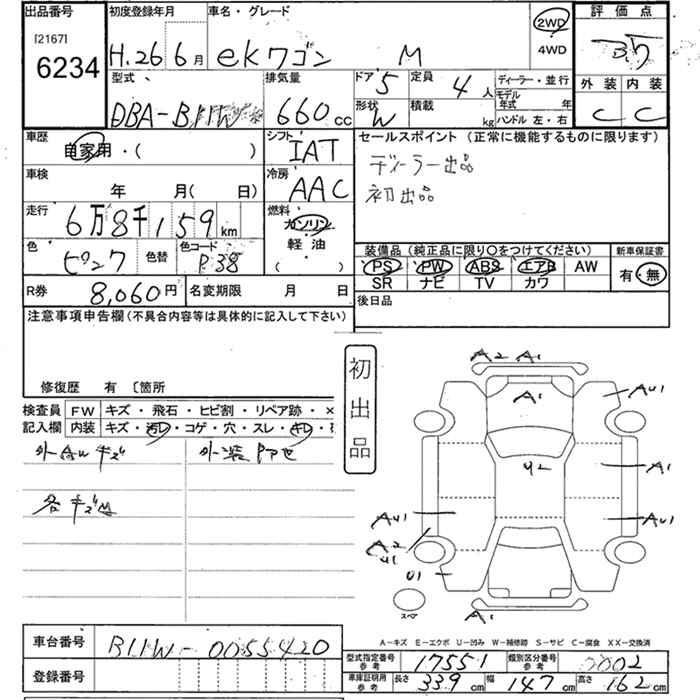 出品番号
[2167]
6234
初度登録年月
H.26 6月
車名・グレード
ekワゴン M
2WD
4WD
評価点
3.5
外装 内装
C C
型式
DBA-B11W
排気量
660 cc
ドア 5
定員 4人
形状 W
積載 kg
ディーラー・並行
モデル年式 年
ハンドル 左・右
車歴
自家用・( )
シフト
IAT
セールスポイント (正常に機能するものに限ります)
ディーラー出品
初出品
車検
年 月( 日)
冷房
AAC
走行
6万8千159km
燃料
ガソリン
軽油
( )
色
ピンク
色替
色コード
P38
装備品(純正品に限り〇をつけてください)
新車保証書
PS PW ABS エアB AW
SR ナビ TV カワ
有・無
R券 8,060円
名変期限 月 日
後日品
注意事項申告欄(不具合内容等は具体的に記入して下さい)
修復歴 有 〔箇所
初出品
検査員
記入欄
FW キズ・飛石・ヒビ割・リペア跡・×
内装 キズ・汚レ・コゲ・穴・スレ・キレ・
各キズ凹
A2 A1
A1
AU1
U2
A1
AU1
AU1
A2
U1
A1
スペ
A-キズ E-エクボ U-凹み W-補修跡 S-サビ C-腐食 XX-交換済
車台番号 B11W-0055420
登録番号
型式指定番号 参考 17551
類別区分番号 参考 0002
車庫証明用 参考 長さ 339cm 幅 147cm 高さ 162cm